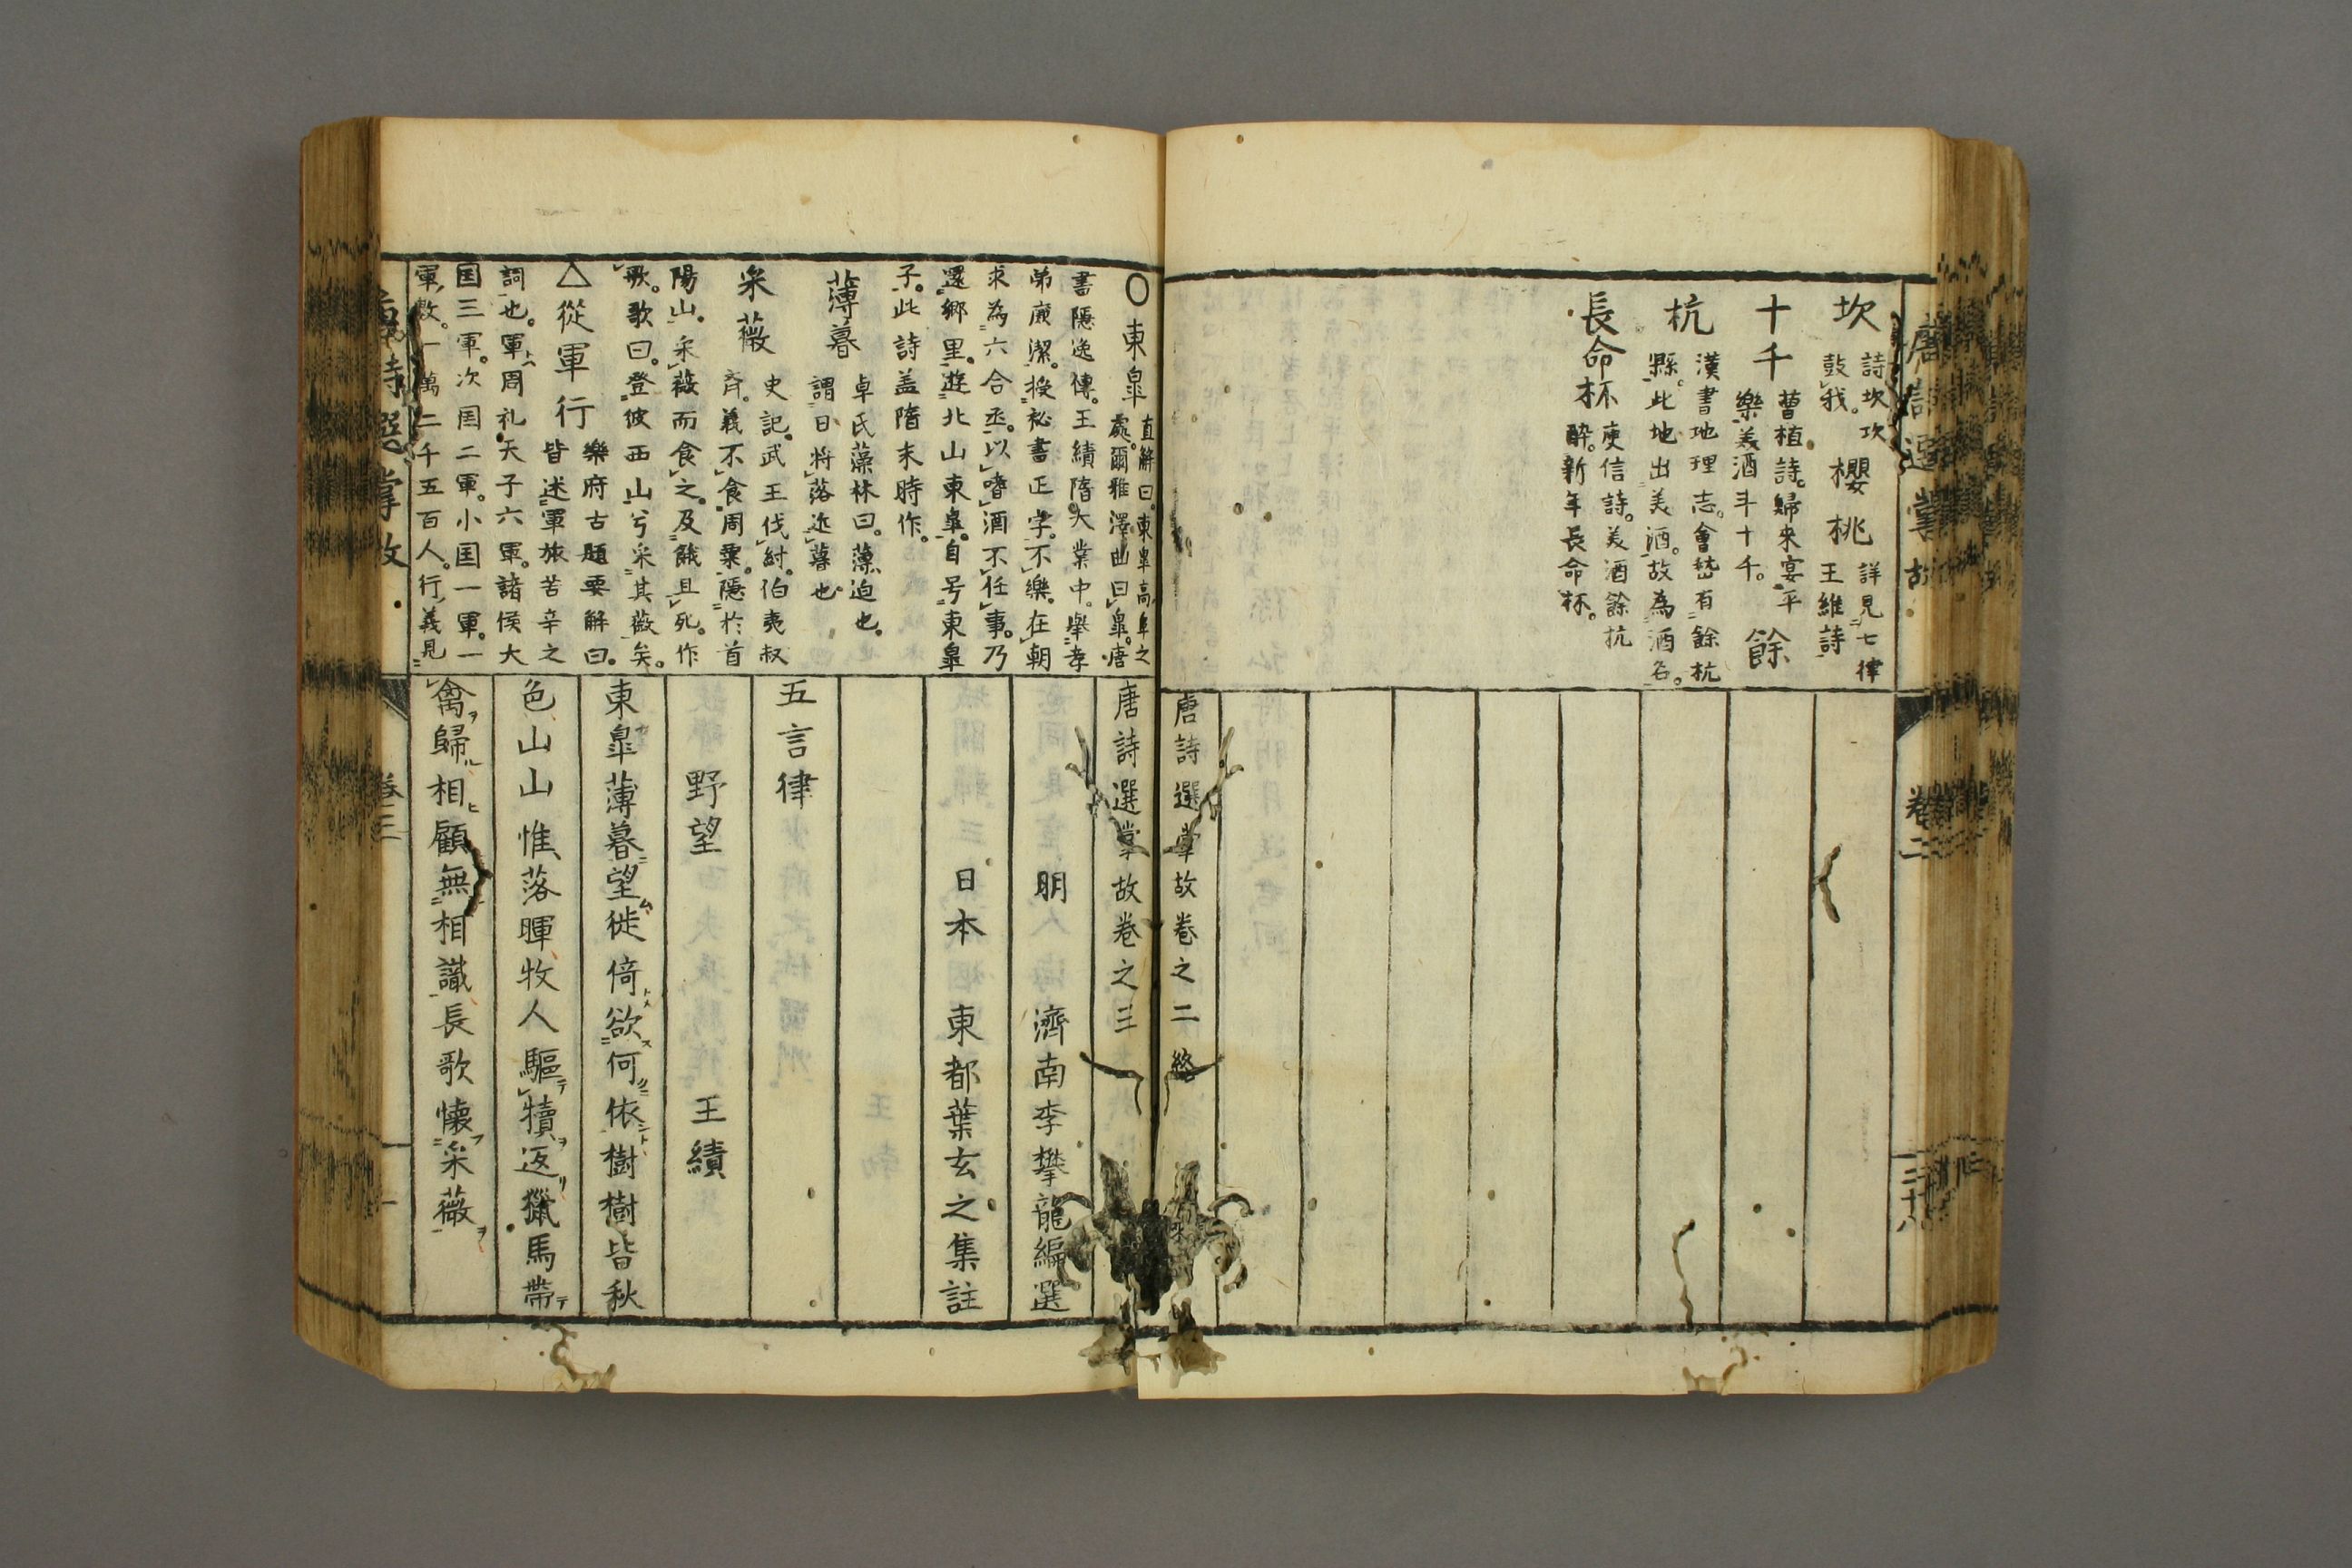 唐詩選掌故
卷二
三十八
坎
詩坎坎
鼓我。
櫻桃
詳見七律
王維詩
十千
曹植詩。歸來宴平
樂美酒斗十千。
餘
杭
漢書地理志。會嵆有餘杭
縣。此地出美酒。故為酒名。
長命杯
庾信詩。美酒餘杭
醉。新年長命杯。
唐詩選掌故卷之二終
○東皐
直解曰。東皐高阜之
處。爾雅澤曲曰皐。唐
書隱逸傳。王績隋大業中。舉孝
弟廉潔。授祕書正字。不樂在朝
求為六合丞。以嗜酒不任事。乃
還郷里。遊北山東皐。自号東皐
子。此詩盖隋末時作。
薄暮
卓氏藻林曰。薄迫也。
謂日将落迯暮也
采薇
史記。武王伐紂。伯夷叔
齊。義不食周粟。隱於首
陽山。采薇而食之。及餓且死。作
歌。歌曰。登彼西山兮采其薇矣。
△從軍行
樂府古題要解曰。
皆述軍旅苦辛之
詞也。軍周礼天子六軍。諸侯大
国三軍。次国二軍。小国一軍。一
軍数。一萬二千五百人。行義見
唐詩選掌故卷之三
明 濟南李攀龍編選
日本 東都葉玄之集註
五言律
野望 王績
東皐薄暮望徙倚欲何依樹樹皆秋
色山山惟落暉牧人驅犢返獵馬帶
禽歸相顧無相識長歌懷采薇
唐詩選掌故
卷三
一